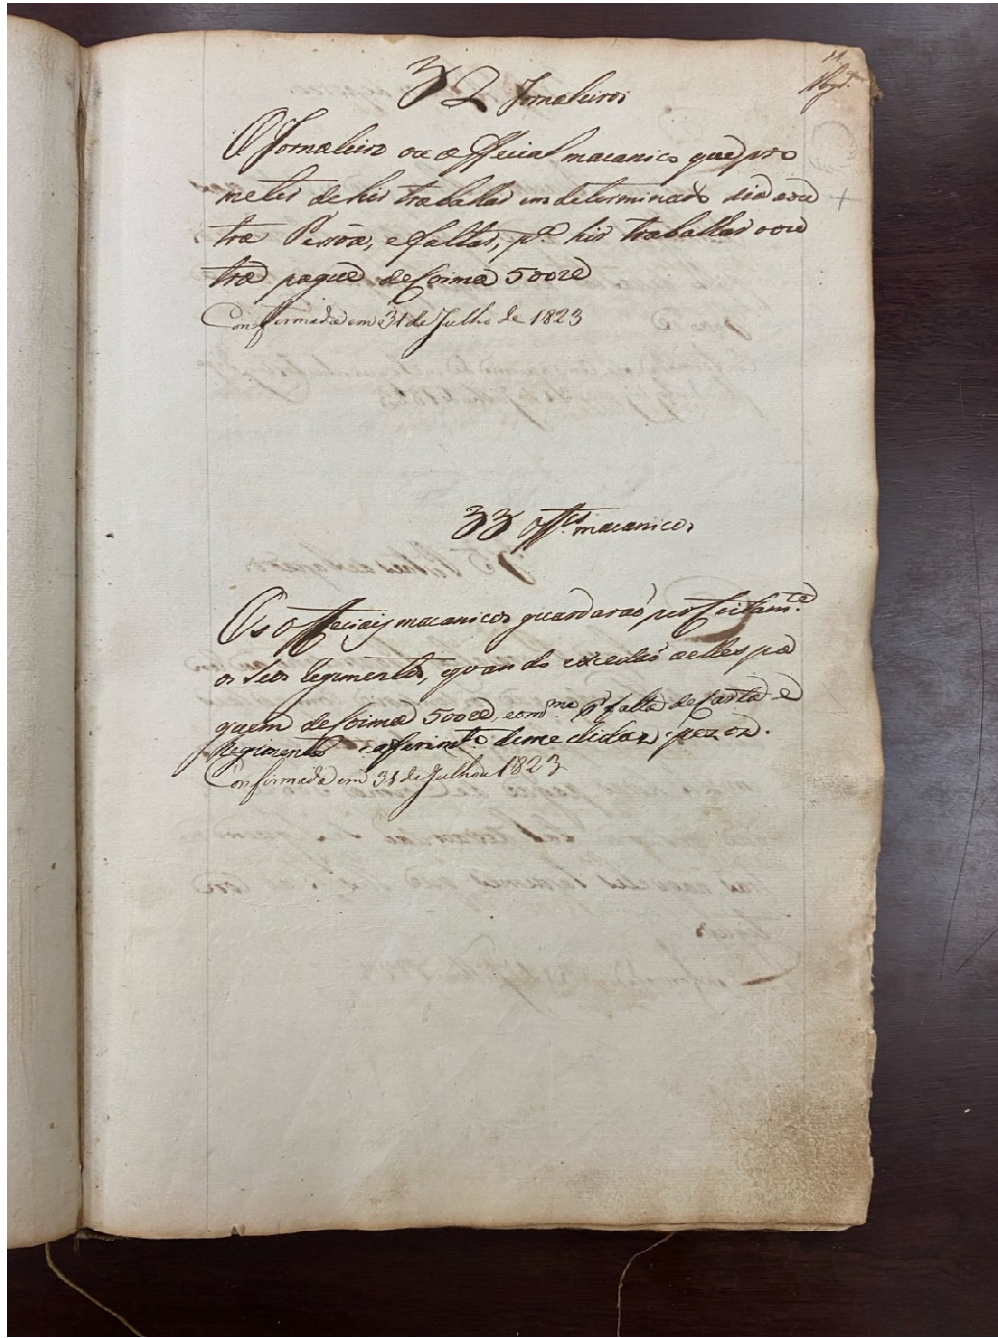 32 Jornaleiros
O Jornaleiro ou official macanico que pro
meter de hir trabalhar em determinado dia a ou
tra Pessoa, e faltar, pa. hir trabalhar a ou
tra pague de Coima 500 re
Confirmada em 31 de Julho de 1823
33 Offes. macanicos
Os officiais macanicos guardarão perfeitamte.
os seos regimentos, e quando exceder aelles pa
guem de Coima 500 re, e ommo. pr. falta de Carta e
Regimento e aferimto. de medidas e pezos.
Confirmada em 31 de Julho de 1823